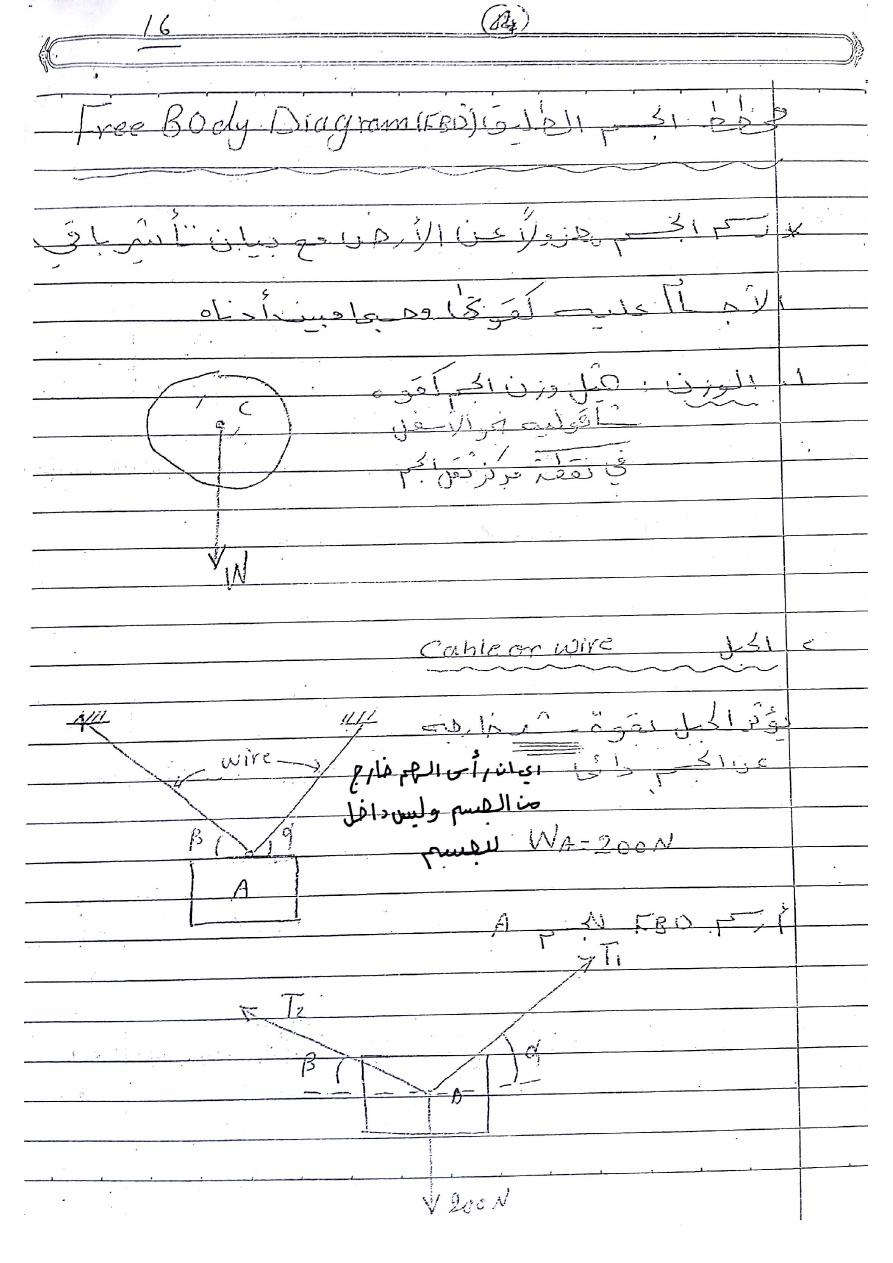 16
مخطط الجسم الطليق Free Body Diagram (FBD)
* رسم الجسم معزولاً عن الأرض مع بيان تأثير باقي
الأجسام عليه كقوى وحسبما مبين أدناه
1. الوزن : يمثل وزن الجسم كقوه
شاقوليه نحو الاسفل
في نقطة مركز ثقل الجسم
C
W
2 الحبل Cable or wire
يؤثر الحبل بقوة شد خارجه
عن الجسم دائما اي ان رأس السهم خارج
من الجسم وليس داخل
للجسم
wire
β α
A
WA=200N
أرسم FBD للجسم A
T1
T2
β α
A
200N